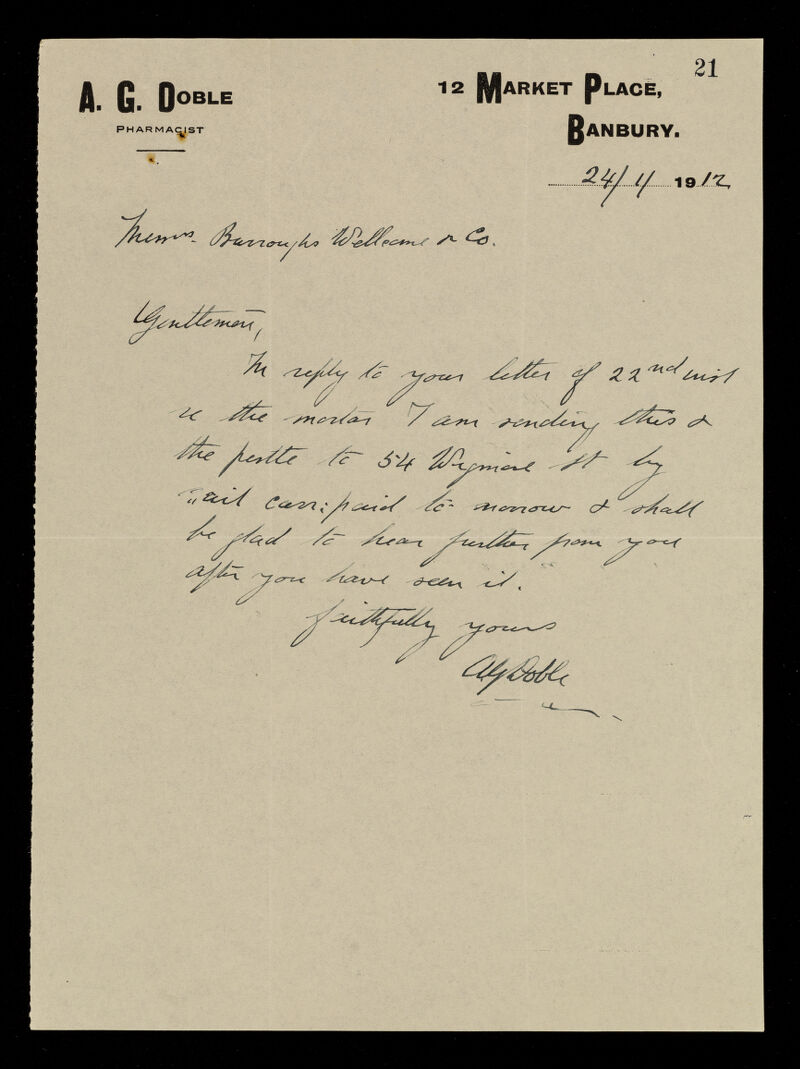 21
A. G. DOBLE
PHARMACIST
12 MARKET PLACE,
BANBURY.
24/1/ 1912
Messrs. Burroughs Wellcome & Co.
Gentlemen,
In reply to your letter of 22nd inst
re the mortar I am sending this &
the pestle to 54 Wigmore St by
rail carr: paid to-morrow & shall
be glad to hear further from you
after you have seen it.
faithfully yours
AGDoble